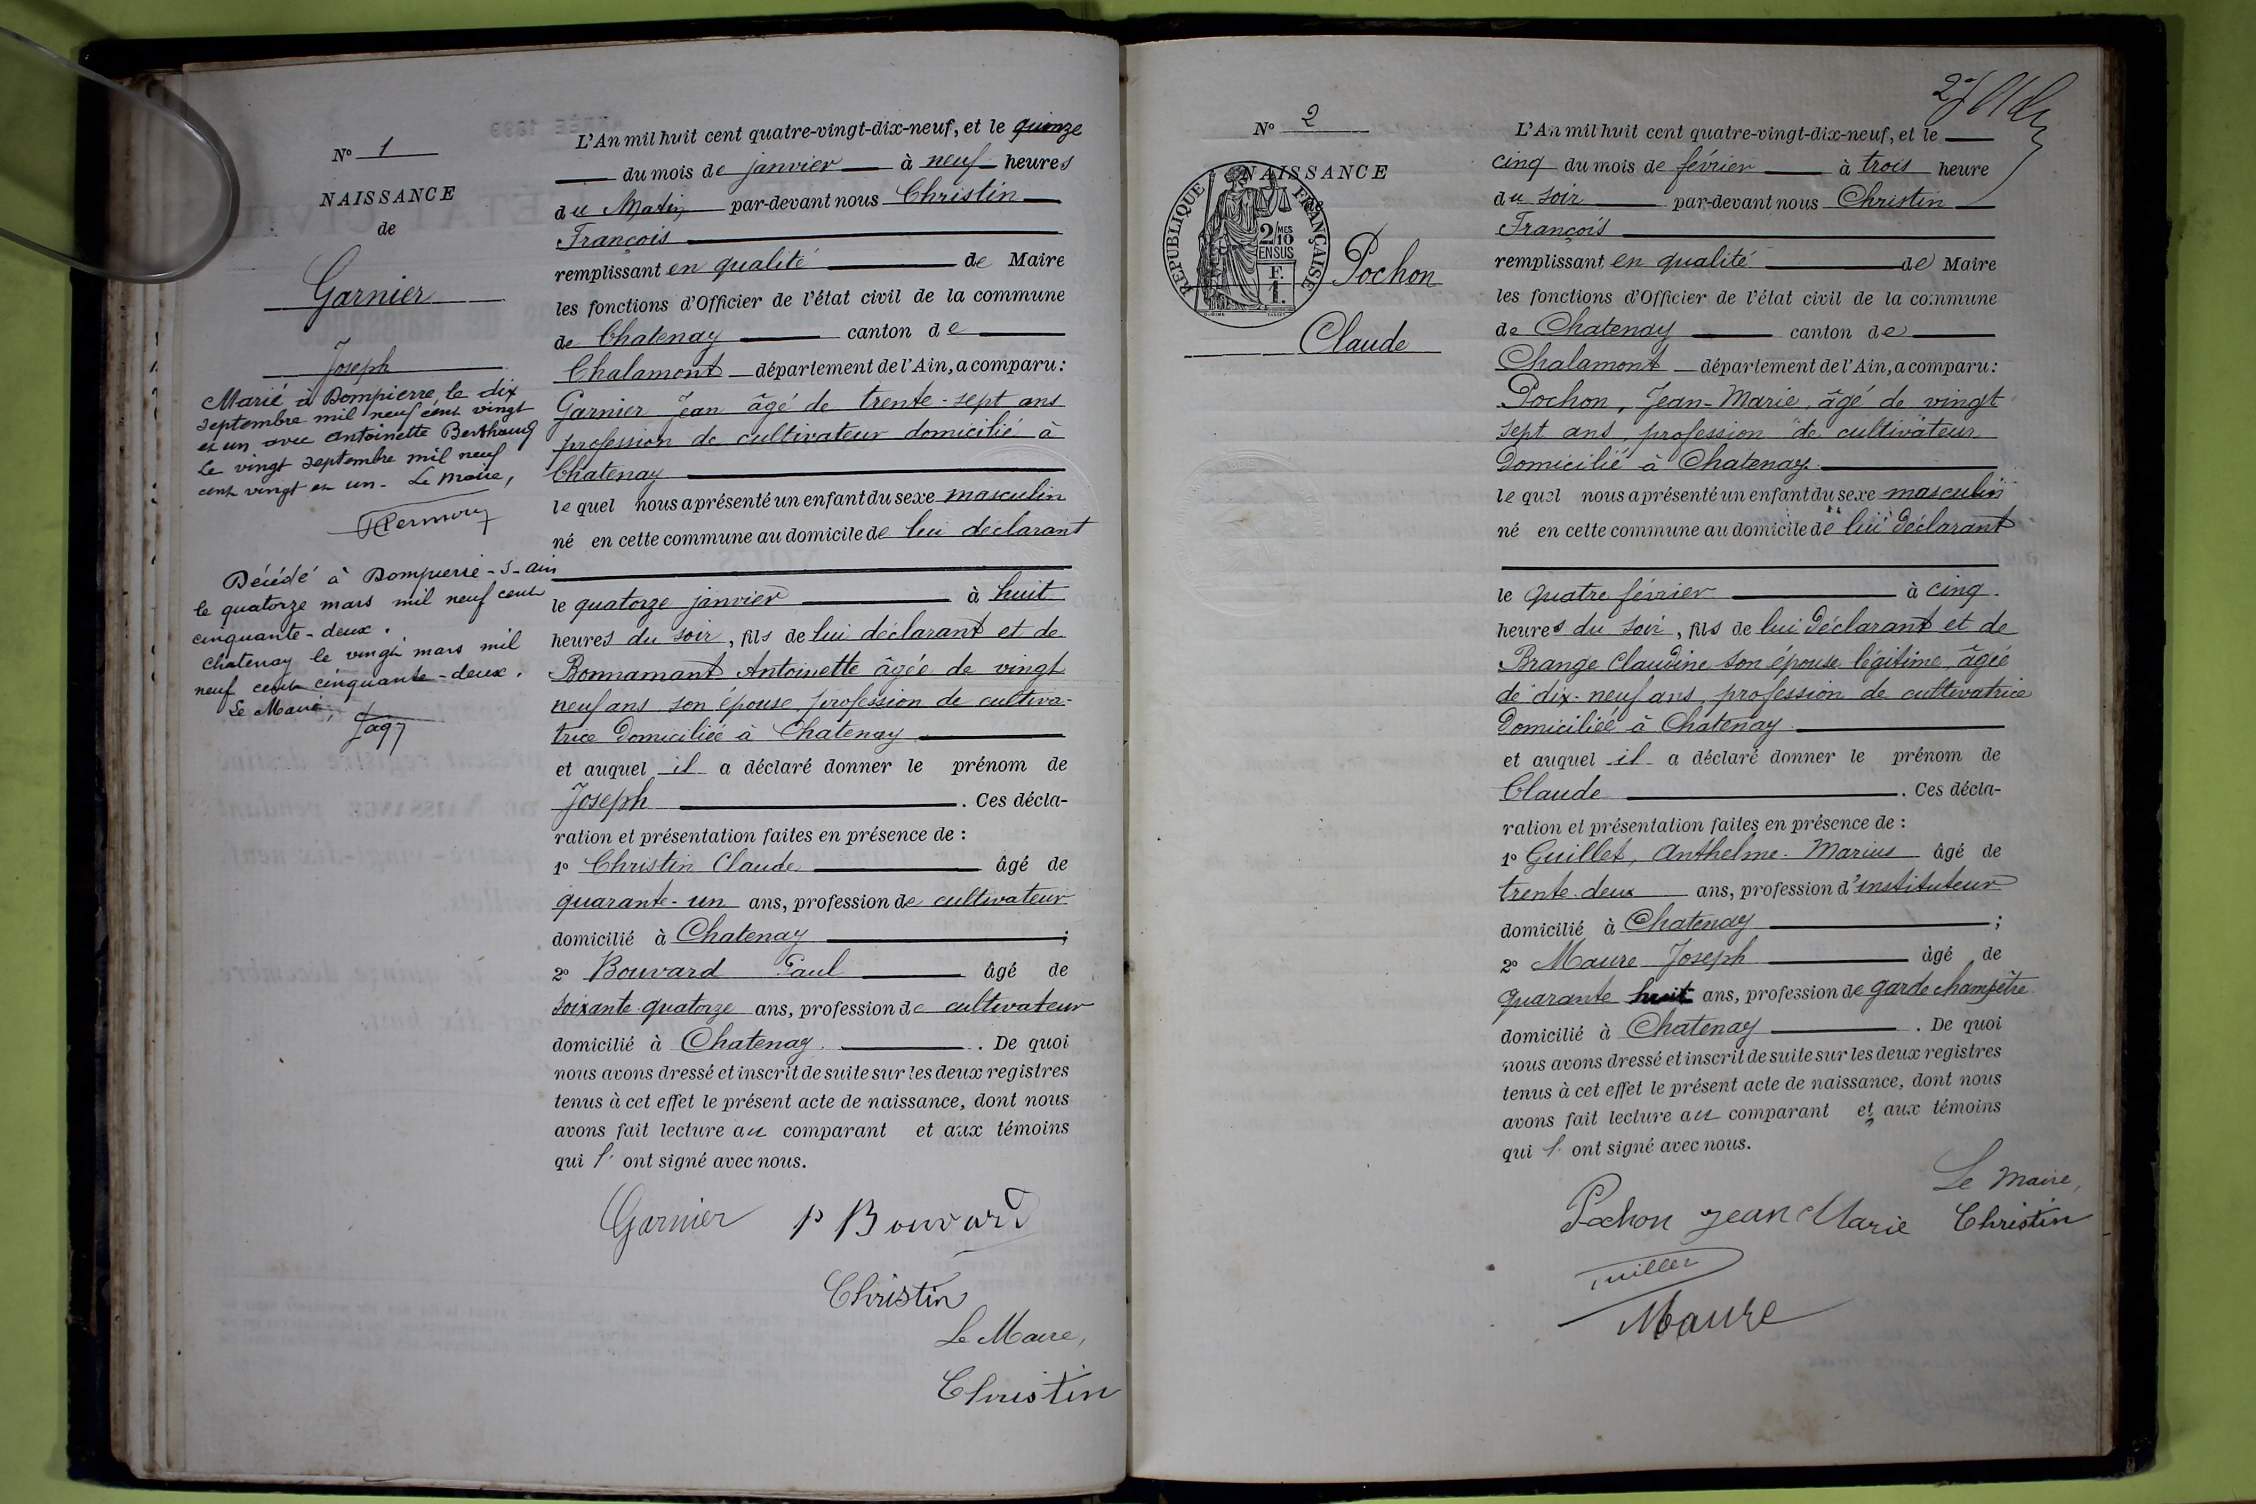 N° 1
NAISSANCE
de
Garnier
Joseph
Marié à Dompierre, le dix
septembre mil neuf cent vingt
et un avec Antoinette Berthaud
Le vingt septembre mil neuf
cent vingt et un - Le Maire,
Décédé à Dompierre-s-ain
le quatorze mars mil neuf cent
cinquante-deux.
Chatenay le vingt mars mil
neuf cent cinquante-deux.
Le Maire,
L'An mil huit cent quatre-vingt-dix-neuf, et le quinze
du mois de janvier à neuf heures
du Matin par-devant nous Christin
François
remplissant en qualité de Maire
les fonctions d'Officier de l'état civil de la commune
de Chatenay canton de
Chalamont département de l'Ain, a comparu:
Garnier Jean âgé de trente-sept ans
profession de cultivateur domicilié à
Chatenay
le quel nous a présenté un enfant du sexe masculin
né en cette commune au domicile de lui déclarant
le quatorze janvier à huit
heures du soir, fils de lui déclarant et de
Bonnamant Antoinette âgée de vingt
neuf ans son épouse, profession de cultiva-
trice domiciliée à Chatenay
et auquel il a déclaré donner le prénom de
Joseph . Ces décla-
ration et présentation faites en présence de :
1° Christin Claude âgé de
quarante-un ans, profession de cultivateur
domicilié à Chatenay ;
2° Bouvard Paul âgé de
soixante quatorze ans, profession de cultivateur
domicilié à Chatenay . De quoi
nous avons dressé et inscrit de suite sur les deux registres
tenus à cet effet le présent acte de naissance, dont nous
avons fait lecture au comparant et aux témoins
qui l' ont signé avec nous.
Garnier P Bouvard
Christin
Le Maire,
Christin
N° 2
NAISSANCE
de
REPUBLIQUE FRANÇAISE
2/10 MES
EN SUS
F.
1.
Pochon
Claude
L'An mil huit cent quatre-vingt-dix-neuf, et le
cinq du mois de février à trois heure
du soir par-devant nous Christin
François
remplissant en qualité de Maire
les fonctions d'Officier de l'état civil de la commune
de Chatenay canton de
Chalamont département de l'Ain, a comparu:
Pochon, Jean-Marie, âgé de vingt
sept ans, profession de cultivateur
Domicilié à Chatenay
le quel nous a présenté un enfant du sexe masculin
né en cette commune au domicile de lui déclarant
le quatre février à cinq
heures du soir, fils de lui déclarant et de
Brange Claudine son épouse légitime âgée
de dix-neuf ans, profession de cultivatrice
Domiciliée à Chatenay
et auquel il a déclaré donner le prénom de
Claude . Ces décla-
ration et présentation faites en présence de :
1° Guillet, Anthelme-Marius âgé de
trente-deux ans, profession d'instituteur
domicilié à Chatenay ;
2° Maure Joseph âgé de
quarante huit ans, profession de garde champêtre
domicilié à Chatenay . De quoi
nous avons dressé et inscrit de suite sur les deux registres
tenus à cet effet le présent acte de naissance, dont nous
avons fait lecture au comparant et aux témoins
qui l' ont signé avec nous.
Le Maire,
Pochon Jean Marie Christin
Maure